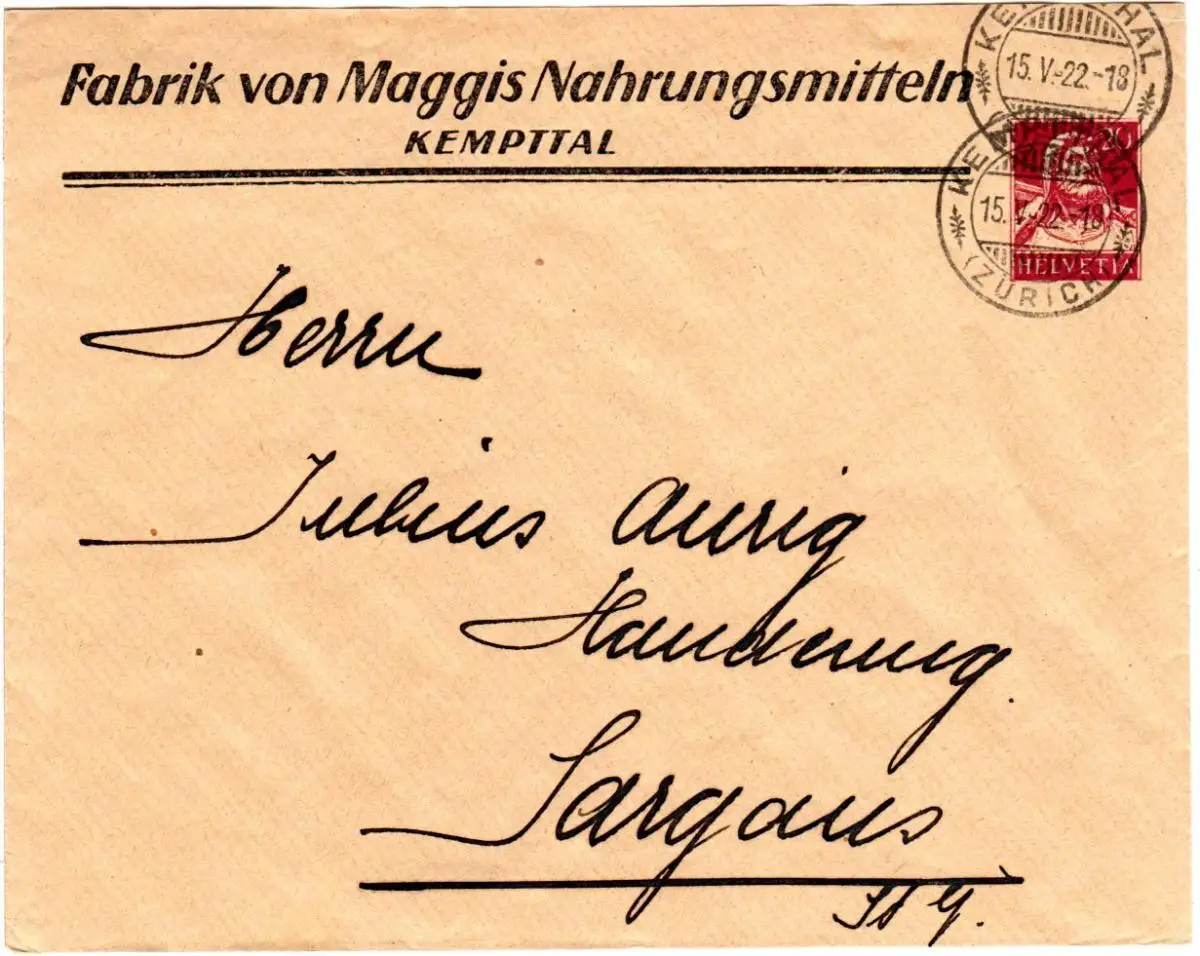 Fabrik von Maggis Nahrungsmitteln
KEMPTTAL
15.V.-22.-18
20
KEMPTTHAL
15.V.-22.-18
(ZÜRICH)
HELVETIA
Herrn
Julius Aurig
Sargans
St G.